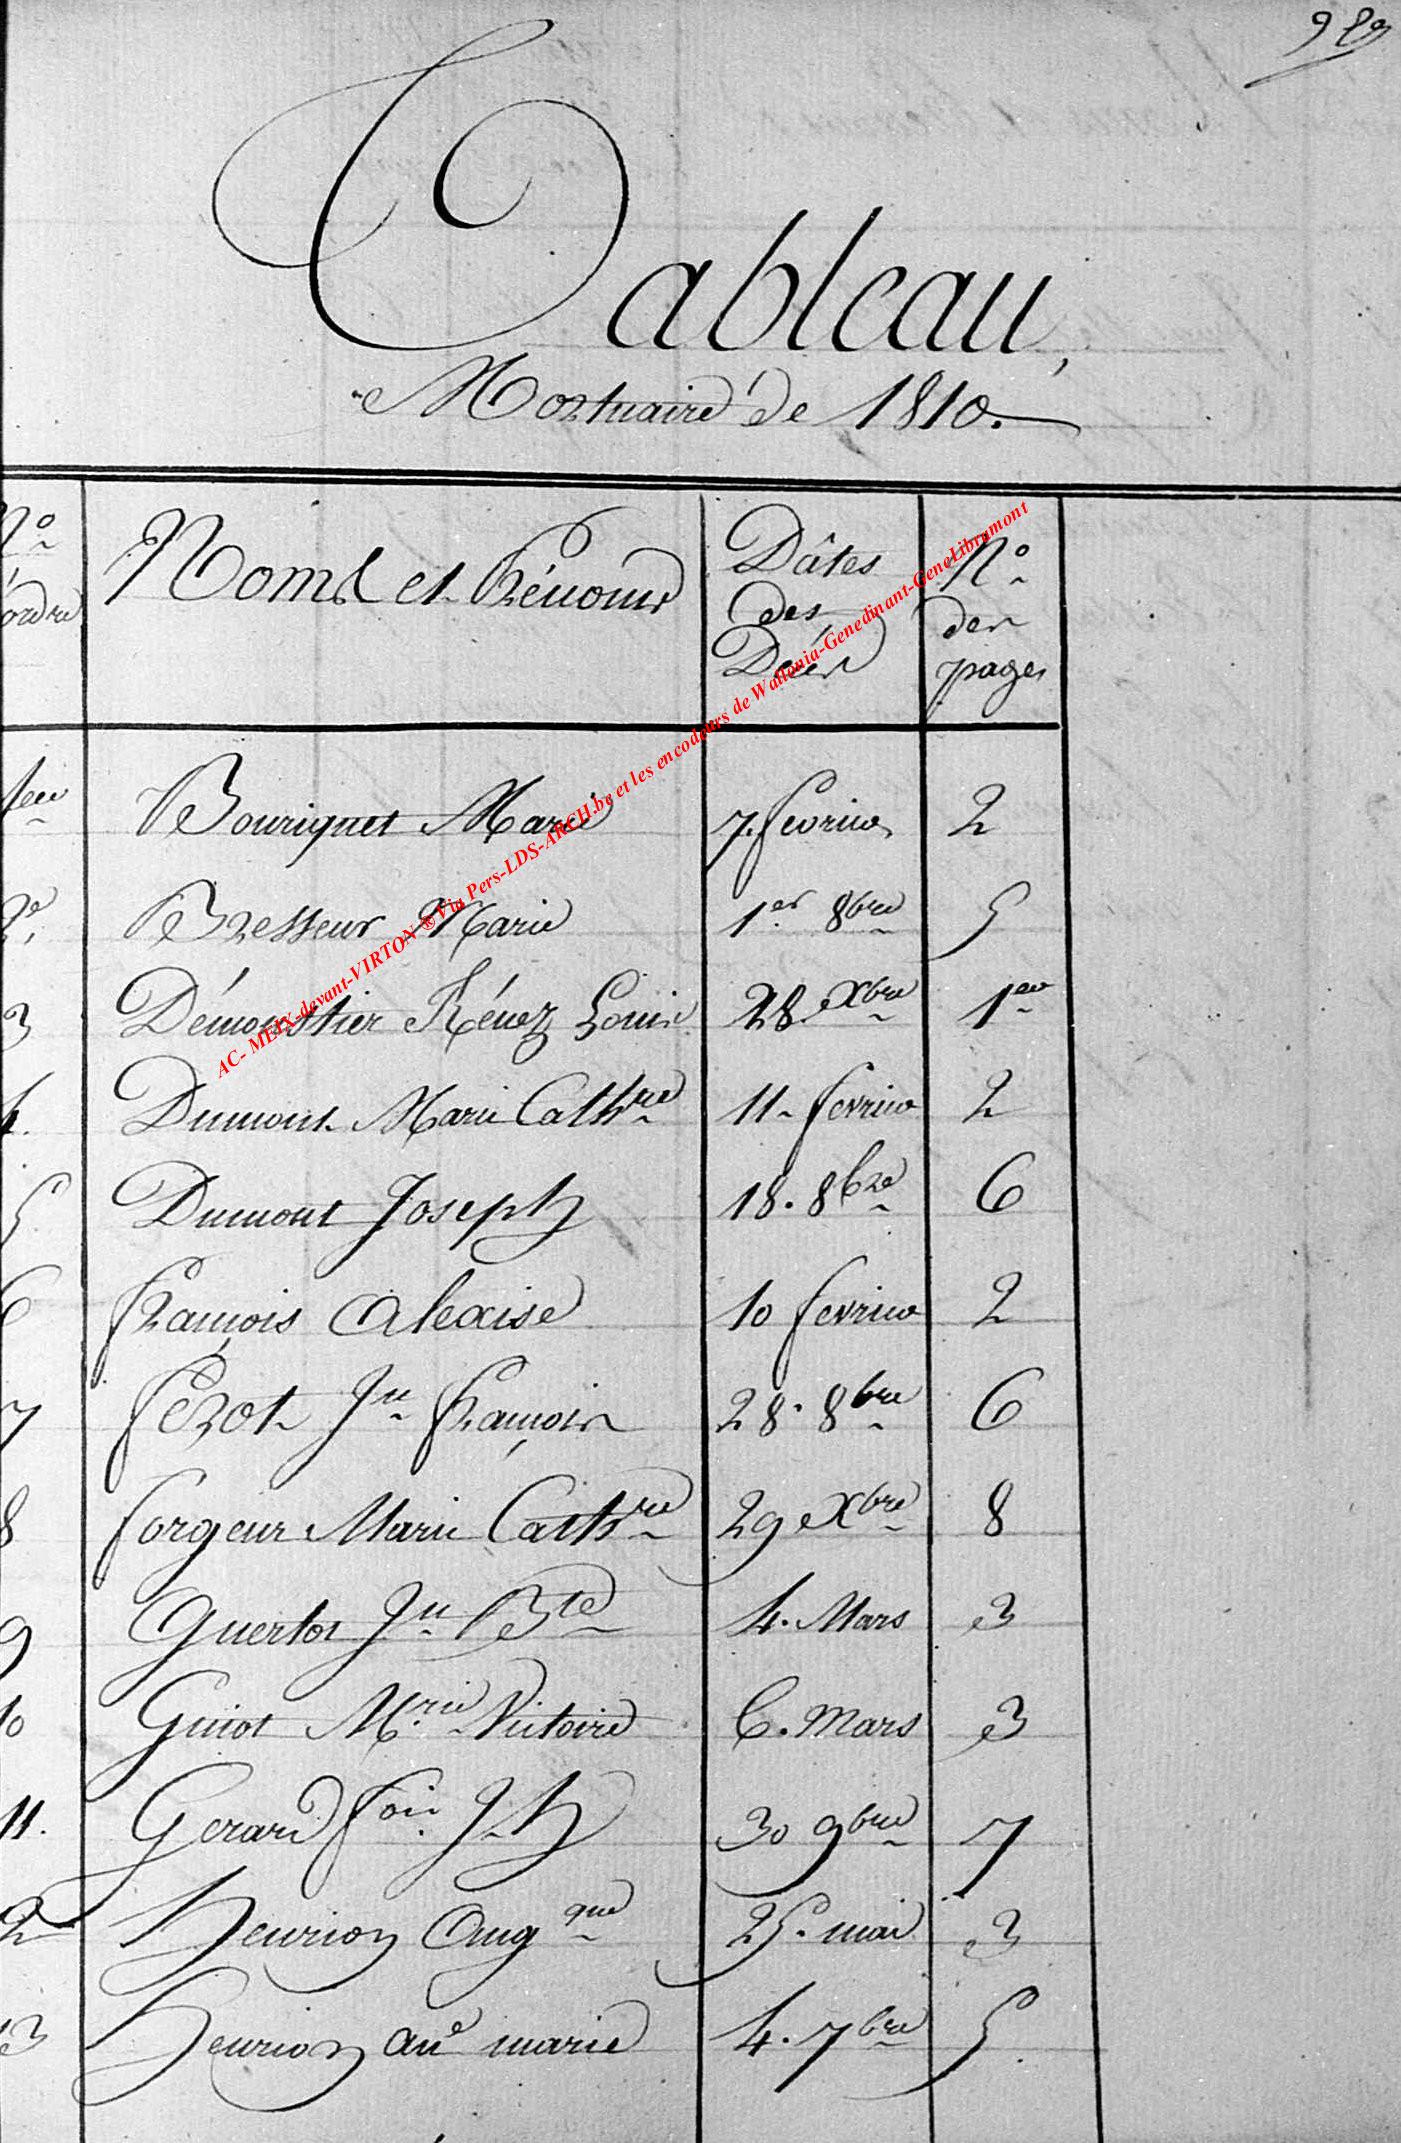 Tableau
Mortuaire de 1810.
No ordre Noms et Prénoms Dâtes des Décès No des pages
1er Bourignet Marie 7. fevrier 2
2e Bresseur Marie 1er 8bre 5
3 Démoustier Rénez Louis 28 Xbre 1er
4. Dumont Marie Cathre 11 fevrier 2
5 Dumont Joseph 18. 8bre 6
6 françois Alexise 10 fevrier 2
7 fezot Jn françois 28. 8bre 6
8 forgeur Marie Cathre 29 Xbre 8
9 Guerlot Jn Bte 4. Mars 3
10 Guiot Mrie Victoire 6. Mars 3
11. Gerard fois Jh 30 9bre 7
2 henrion Angque 25. mai 3
13 henrion ane marie 4. 7bre 5
AC- MEIX-devant-VIRTON ® Via Pers-LDS-ARCH.be et les encodeurs de Wallonia-Genedinant-GeneLibramont